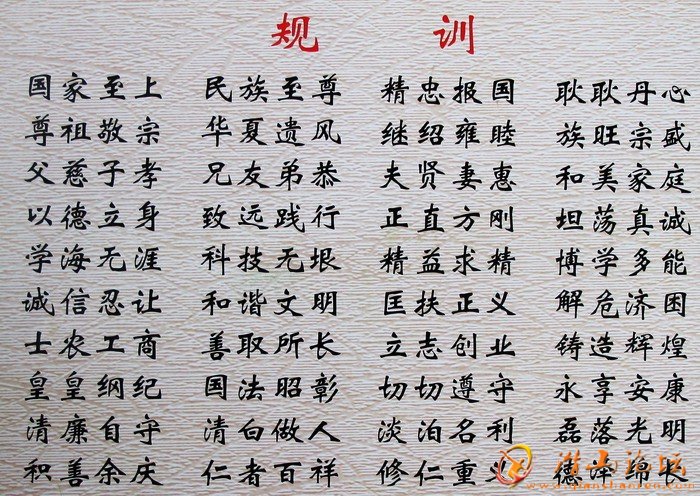 规 训
国家至上 民族至尊 精忠报国 耿耿丹心
尊祖敬宗 华夏遗风 继绍雍睦 族旺宗盛
父慈子孝 兄友弟恭 夫贤妻惠 和美家庭
以德立身 致远践行 正直方刚 坦荡真诚
学海无涯 科技无垠 精益求精 博学多能
诚信忍让 和谐文明 匡扶正义 解危济困
士农工商 善取所长 立志创业 铸造辉煌
皇皇纲纪 国法昭彰 切切遵守 永享安康
清廉自守 清白做人 淡泊名利 磊落光明
积善余庆 仁者百祥 修仁重义 德泽绵长
潜山论坛